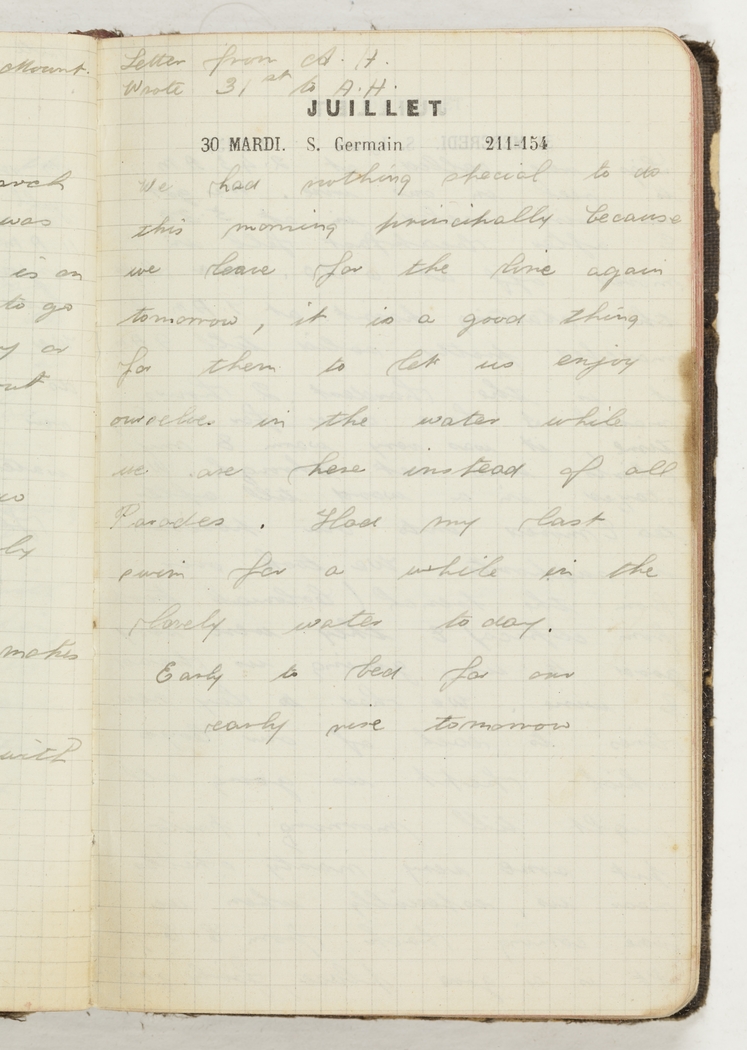 Letter from A. H.
Wrote 31st to A.H.
JUILLET
30 MARDI. S. Germain 211-154
We had nothing special to do
this morning principally because
we leave for the line again
tomorrow, it is a good thing
for them to let us enjoy
ourselves in the water while
we are here instead of all
Parades. Had my last
swim for a while in the
lovely water today.
Early to bed for our
early rise tomorrow
Mount.
was
is an
to go
or
out
makes
with